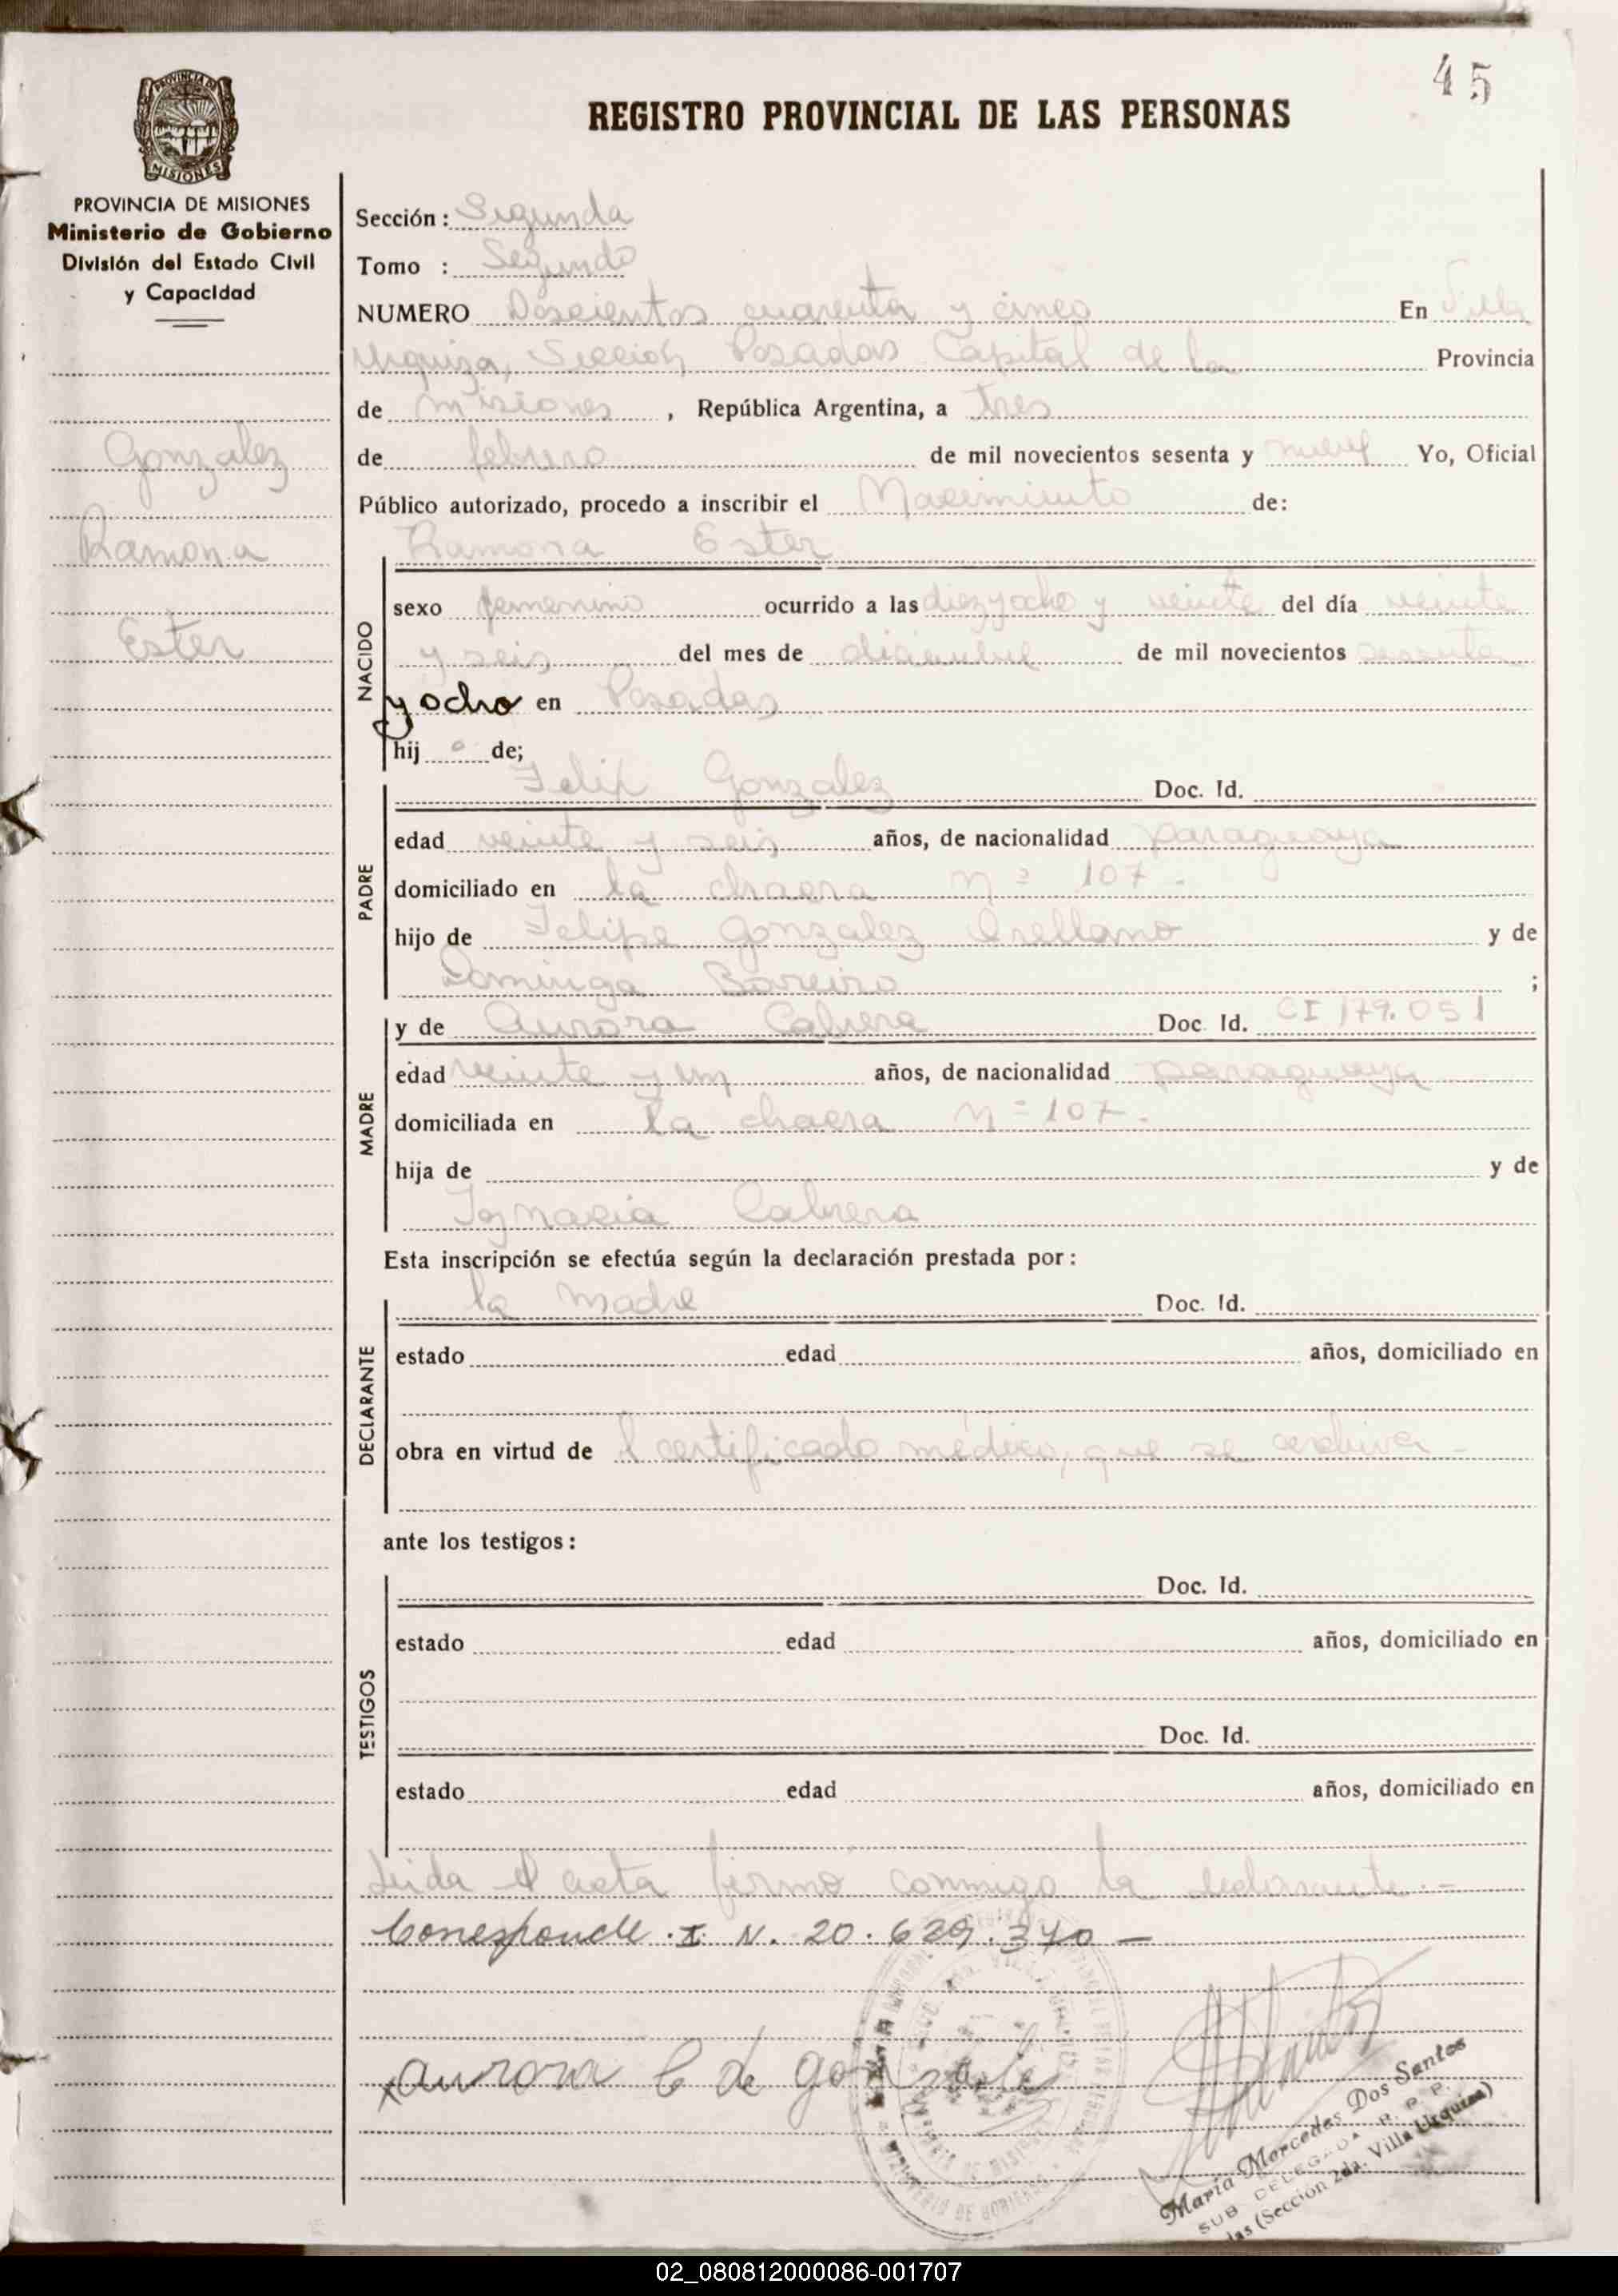 45
PROVINCIA DE
MISIONES
REGISTRO PROVINCIAL DE LAS PERSONAS
PROVINCIA DE MISIONES
Ministerio de Gobierno
División del Estado Civil
y Capacidad
Gonzalez
Ramona
Ester
Sección: Segunda
Tomo : Segundo
NUMERO Doscientos cuarenta y cinco En Villa
Urquiza, Sección Posadas Capital de la Provincia
de Misiones, República Argentina, a tres
de febrero de mil novecientos sesenta y nueve Yo, Oficial
Público autorizado, procedo a inscribir el Nacimiento de:
Ramona Ester
NACIDO
sexo femenino ocurrido a las diez y ocho y veinte del día veinte
y seis del mes de diciembre de mil novecientos sesenta
y ocho en Posadas
hij a de;
PADRE
Felip Gonzalez Doc. Id.
edad veinte y seis años, de nacionalidad paraguaya
domiciliado en la chacra Nº 107.
hijo de Felipe Gonzalez Orellano y de
Dominga Boreiro ;
MADRE
y de Aurora Cabrera Doc. Id. CI 179.051
edad veinte y un años, de nacionalidad paraguaya
domiciliada en la chacra Nº 107.
hija de y de
Ignacia Cabrera
Esta inscripción se efectúa según la declaración prestada por:
DECLARANTE
la madre Doc. Id.
estado edad años, domiciliado en
obra en virtud de l certificado médico, que se archiva -
ante los testigos:
TESTIGOS
Doc. Id.
estado edad años, domiciliado en
Doc. Id.
estado edad años, domiciliado en
Leida el acta firmó conmigo la declarante.-
Corresponde I. N. 20.629.370 -
x Aurora C de Gonzale
María Mercedes Dos Santos
SUB DELEGADA R. P. P.
das (Sección 2da. Villa Urquiza)
02_080812000086-001707